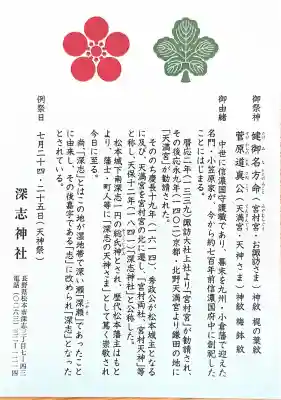 御祭神
健御名方命（宮村宮・お諏訪さま）神紋 梶の葉紋
菅原道真公（天満宮・天神さま）神紋 梅鉢紋
御由緒
中世に信濃国守護職であり、幕末を九州・小倉藩で迎えた
名門・小笠原家が、今から約七百年前信濃国府中に創祀した
ことにはじまる。
暦応二年（一三三九）諏訪大社上社より「宮村宮」が勧請され、
その後応永九年（一四〇二）京都・北野天満宮より鎌田の地に
「天満宮」が勧請された。
そののち慶長十九年（一六一四）、秀政公が松本城主となる
に及び、天満宮を宮村宮の北に遷し、「宮村両社、宮村天神」等
と称し、天保十二年（一八四一）「深志神社」と公称した。
松本城下南深志一円の総氏神とされ、歴代松本藩主はもと
より、藩士・町人等に「深志の天神さま」として篤く崇敬され
今日に至る。
尚、「深志」とはこの地が湿地帯で深い瀬「深瀬」であったこと
に由来し、その後嘉字である「志」に改められ「深志」となった
とされている。
例祭日 七月二十四・二十五日（天神祭）
深志神社
長野県松本市深志三丁目七―四三
電話 〇二六三―三二―一二一四